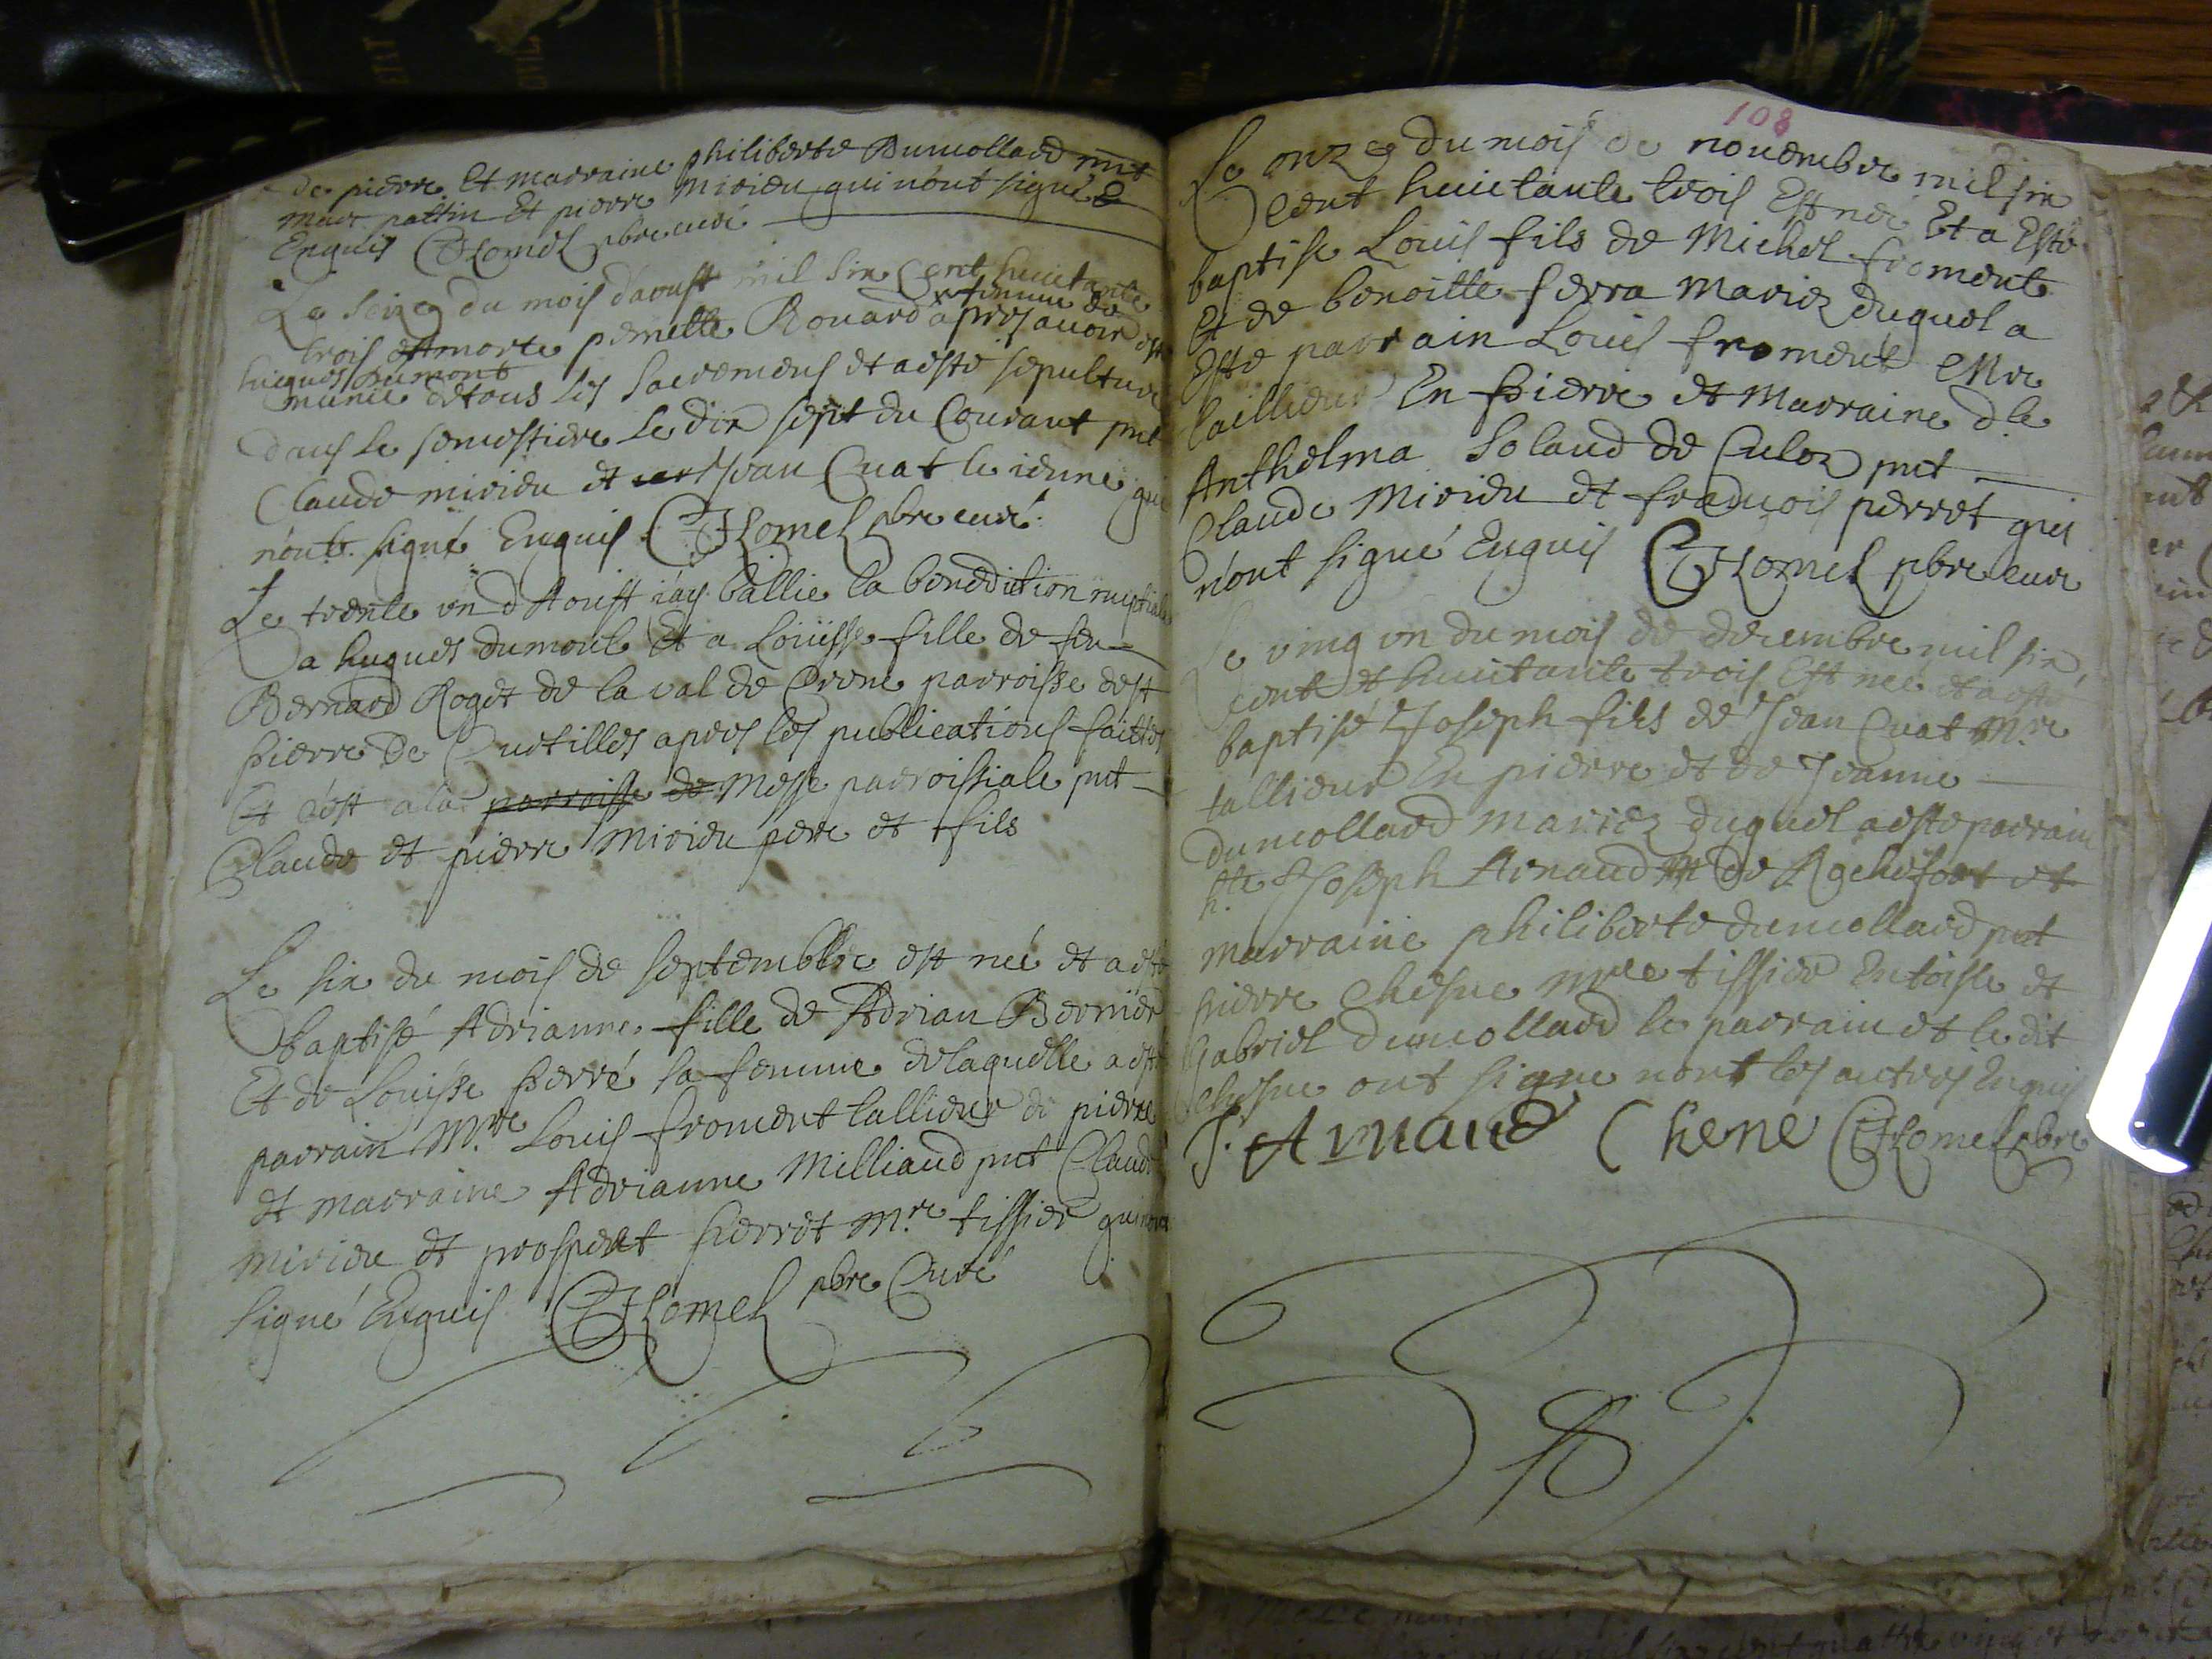 de pierre Et marraine philiberte Dumollard pnt
marc pattin Et pierre Mirieu qui n'ont signé
Enquis CHomel pbre curé
Le seize du mois d'aoust mil six Cent huictante
trois est morte pernette Rouard femme de
hugues Dumont apres avoir esté
munie de tous les sacremens et a esté sepulturé
dans le semestiere le dix sept du Courant pnt
Claude mirieu et Jean Cuat le ieune qui
n'ont signé Enquis CHomel pbre curé
Le trente un d'Aoust i'ay ballié la benediction nuptiale
a hugues dumont Et a Loüisse fille de feu
Bernard Roget de la val de Crene parroisse de st
pierre de Curtilles apres les publications faittes
Et c'est a la parroisse de Messe parroissiale pnt
Claude et pierre Mirieu pere et fils
Le six du mois de septembre est neé et a esté
baptisé Adrianne fille de Adrian Bernier
Et de Louisse perré sa femme de laquelle a esté
parrain Mre Louis froment tallieur de pierre
et marraine Adrianne Milliaud pnt Claude
mirieu et prospert pierret Mre tissier qui n'ont
signé Enquis CHomel pbre Curé
108
Le onze du mois de novembre mil six
Cent huictante trois Est neé Et a Esté
baptisé Louis fils de Michel froment
Et de benoitte serra mariez duquel a
Esté parrain Louis froment Mre
tailleur En pierre et Marraine dle
Anthelma Solaud de Culoz pnt
Claude Mirieu et francois perret qui
n'ont signé Enquis CHomel pbre curé
Le ving un du mois de decembre mil six
cent et huictante trois Est neé et a esté
baptisé Joseph fils de Jean Cuat Mre
tallieur En pierre et de Jeanne
dumollard mariez duquel a esté parrain
hte Joseph Arnaud de Rochefort et
marraine philiberte dumollard pnt
pierre Chesne Mre tissier En toisle et
Gabriel dumollard le parrain et le dit
Chesne ont signé nont les autres Enquis
J. Arnaud Chene CHomel pbre